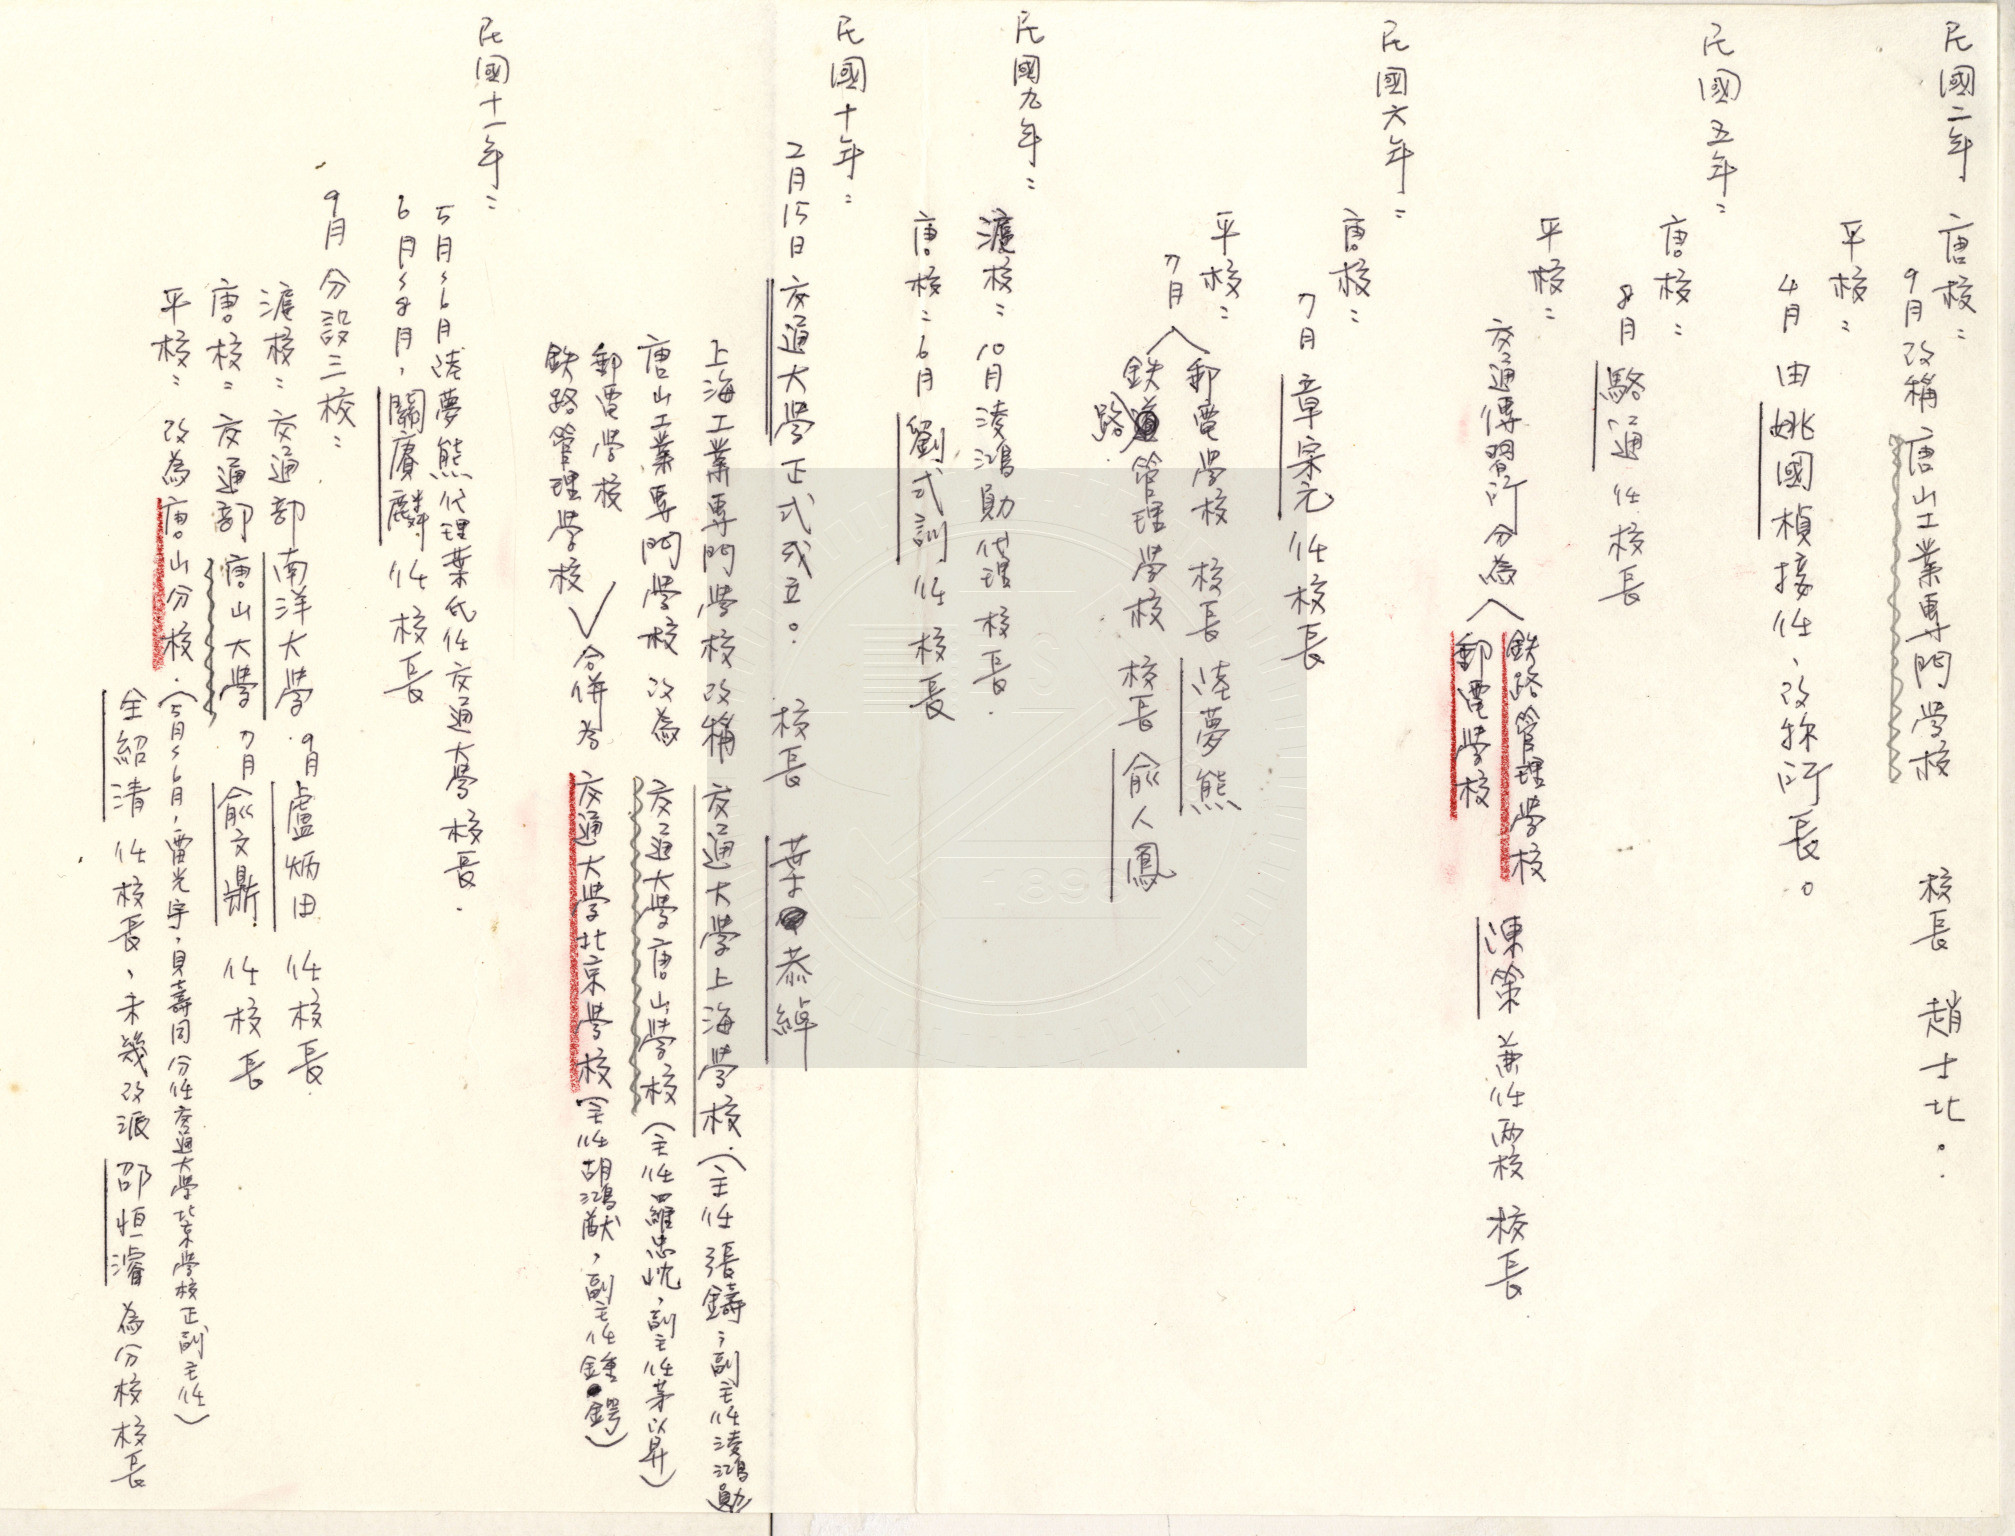 民國二年 唐校：
9月改稱 唐山工業專門學校 校長 趙士北。
平校：
4月由姚國楨接任、改称所長。
民國五年：
唐校：
8月 駱通 任校長
平校：
交通傳習所 分為
鉄路管理學校
郵電學校
陳策 兼任两校 校長
民國六年：
唐校：
7月 章宗元 任校長
平校：
7月
郵電學校 校長 陸夢熊
鉄路管理學校 校長 俞人鳳
民國九年：
滬校：10月凌鴻勛代理校長.
唐校：6月 劉式訓 任校長
民國十年：
2月15日 交通大學正式成立。 校長 葉恭綽
上海工業專門學校改稱 交通大學上海學校.（主任張鑄；副主任凌鴻勛）
唐山工業專門學校 改為 交通大學唐山學校（主任羅忠忱，副主任茅以昇）
郵電學校
鉄路管理學校
合併為 交通大學北京學校（主任胡鴻猷，副主任鍾鍔）
民國十一年：
5月~6月陸夢熊代理葉氏任交通大學校長.
6月~8月，關賡麟 任校長
9月分設三校：
滬校：交通部南洋大學．9月 盧炳田 任校長.
唐校：交通部 唐山大學 7月 俞文鼎. 任校長
平校：改為唐山分校.（5月~6月，雷光宇，貝壽同分任交通大學北京學校正副主任）
全紹清 任校長，未幾改派 邵恒濬 為分校校長
1896